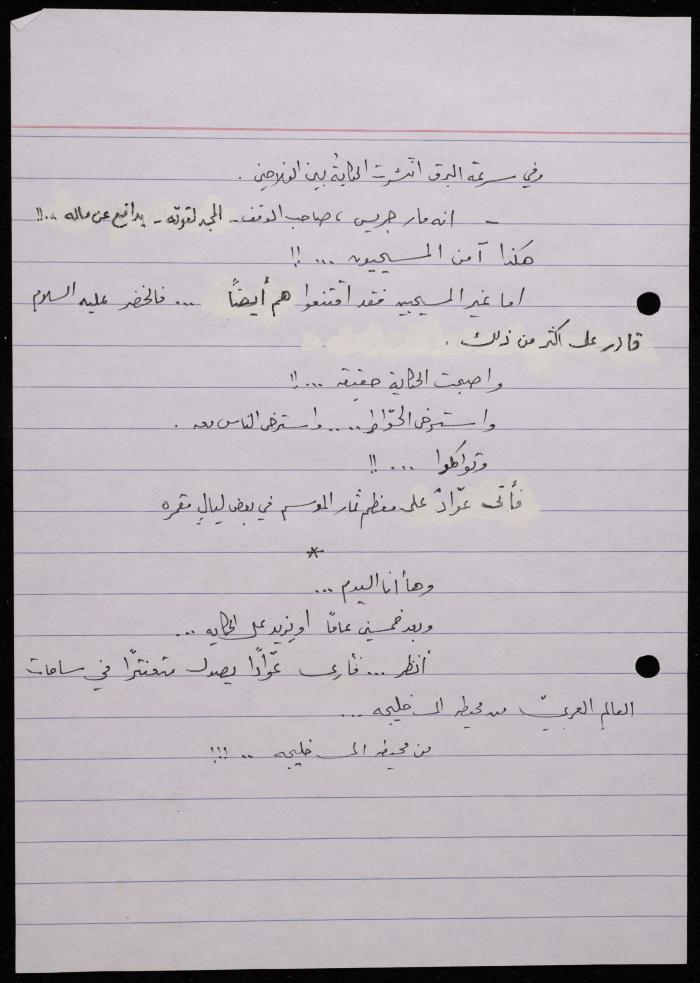 وفي سرعة البرق انتشرت الحكايةُ بين الفلاحين .
- انه مار جريس ، صاحب الوقف - المجد لقوته - يدافع عن ماله ..!!
هكذا آمن المسيحيون ... !!
اما غير المسيحيين فقد اقتنعوا هم أيضاً ... فالخضر عليه السلام
قادر على اكثر من ذلك .
واصبحت الحكاية حقيقه ... !!
واسترضى الخوّاط .... واسترضى الناس معه .
وتواكلوا ... !!
فأتى عوّادٌ على معظم ثمار الموسم في بعض ليالٍ مقمره
*
وها أنا اليوم ...
وبعد خمسين عامًا او يزيد على الحكايه ...
أنظر ... فأرى عوّادًا يصول متعنترًا في ساحات
العالم العربيّ من محيطه الى خليجه ...
من محيطه الى خليجه .. !!!